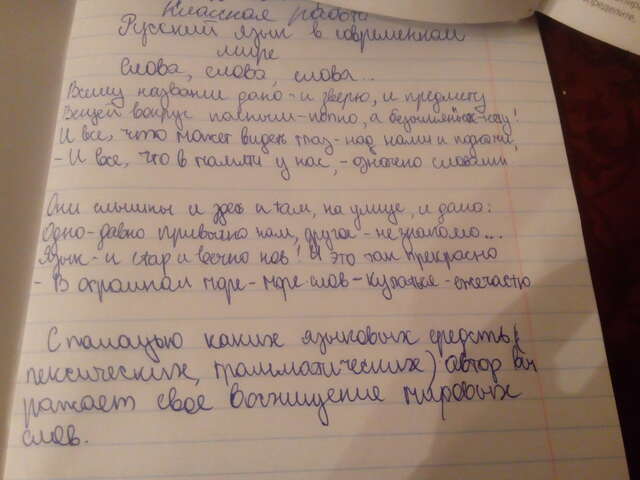 Классная работа
Русский язык в современном
мире
Слова, слова, слова...
Всему название дано - и зверю, и предмету
Вещей вокруг полным-полно, а безымянных - нету!
И все, что может видеть глаз - над нами и под нами,
- И все, что в памяти у нас, - означено словами,
Они слышны и здесь и там, на улице, и дома:
Одно - давно привычно нам, другое - не знакомо...
Язык - и стар и вечно нов! И это так прекрасно
- В огромном море - море слов - купаться - ежечастно
С помощью каких языковых средств (
лексических, грамматических) автор вы
ражает свое восхищение миром
слов.